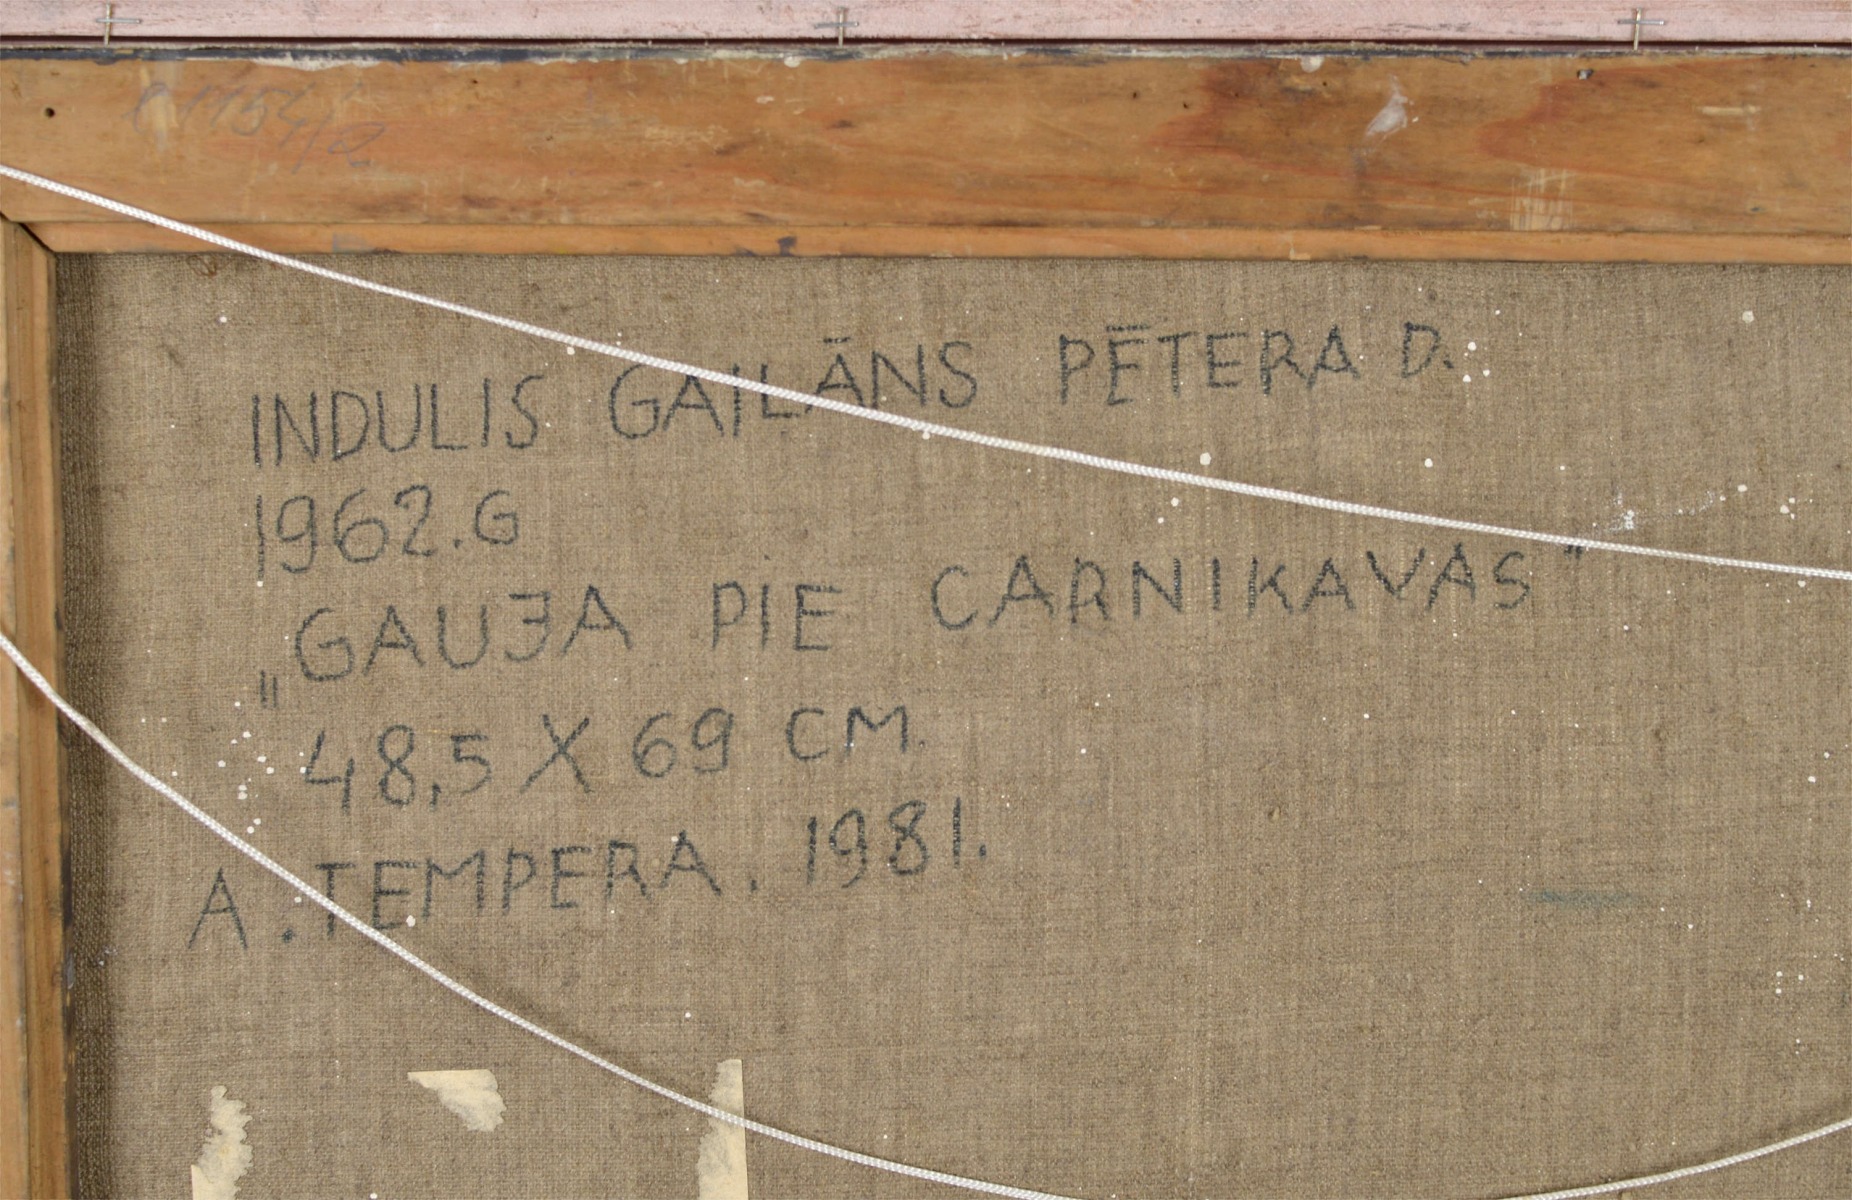 INDULIS GAIĻĀNS PĒTERA D.
1962.G
„GAUJA PIE CARNIKAVAS"
48,5 X 69 CM.
A. TEMPERA. 1981.